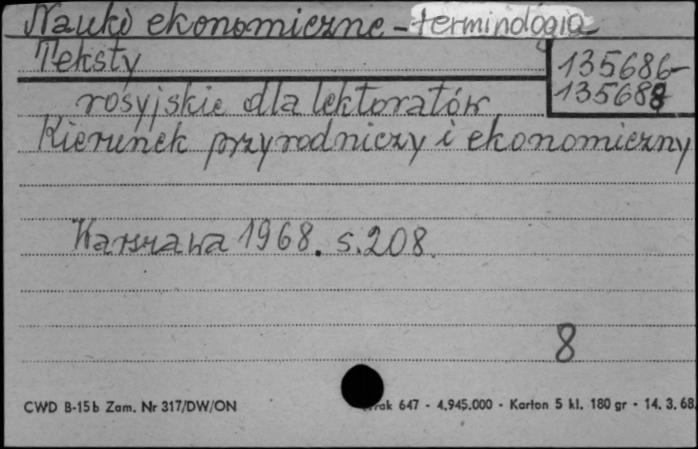 Nauki ekonomiczne - terminologia
Teksty
135686-
135688
rosyjskie dla lektoratów
Kierunek przyrodniczy i ekonomiczny
Warszawa 1968. s. 208.
8
CWD B-15b Zam. Nr 317/DW/ON
647 - 4.945.000 - Karton 5 kl. 180 gr - 14. 3. 68.